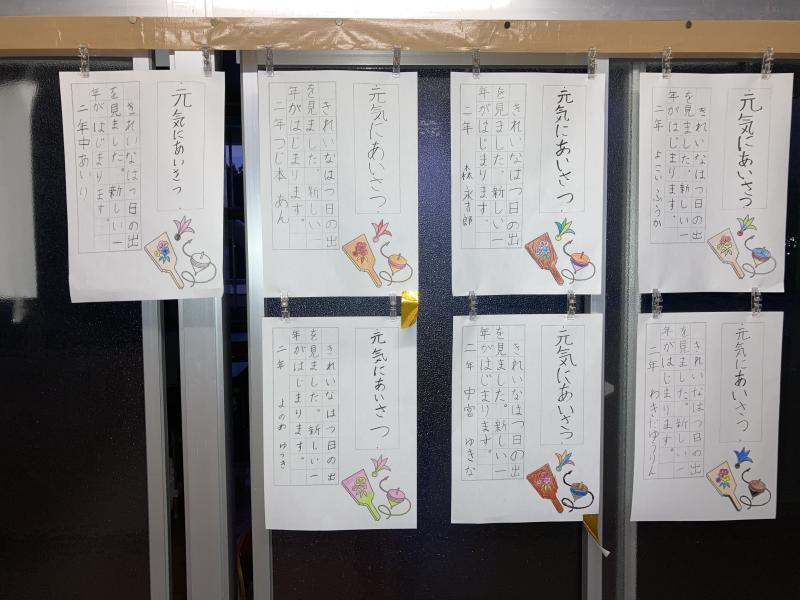 元気にあいさつ
きれいなはつ日の出
を見ました。新しい一
年がはじまります。
二年中あいり
元気にあいさつ
きれいなはつ日の出
を見ました。新しい一
年がはじまります。
二年 つじ本 あん
元気にあいさつ
きれいなはつ日の出
を見ました。新しい一
年がはじまります。
二年 森 永吉郎
元気にあいさつ
きれいなはつ日の出
を見ました。新しい一
年がはじまります。
二年 よこい ふうか
元気にあいさつ
きれいなはつ日の出
を見ました。新しい一
年がはじまります。
二年 よのめ ゆうき
元気にあいさつ
きれいなはつ日の出
を見ました。新しい一
年がはじまります。
二年 中宮 ゆきな
元気にあいさつ
きれいなはつ日の出
を見ました。新しい一
年がはじまります。
二年 わきだゆうりん